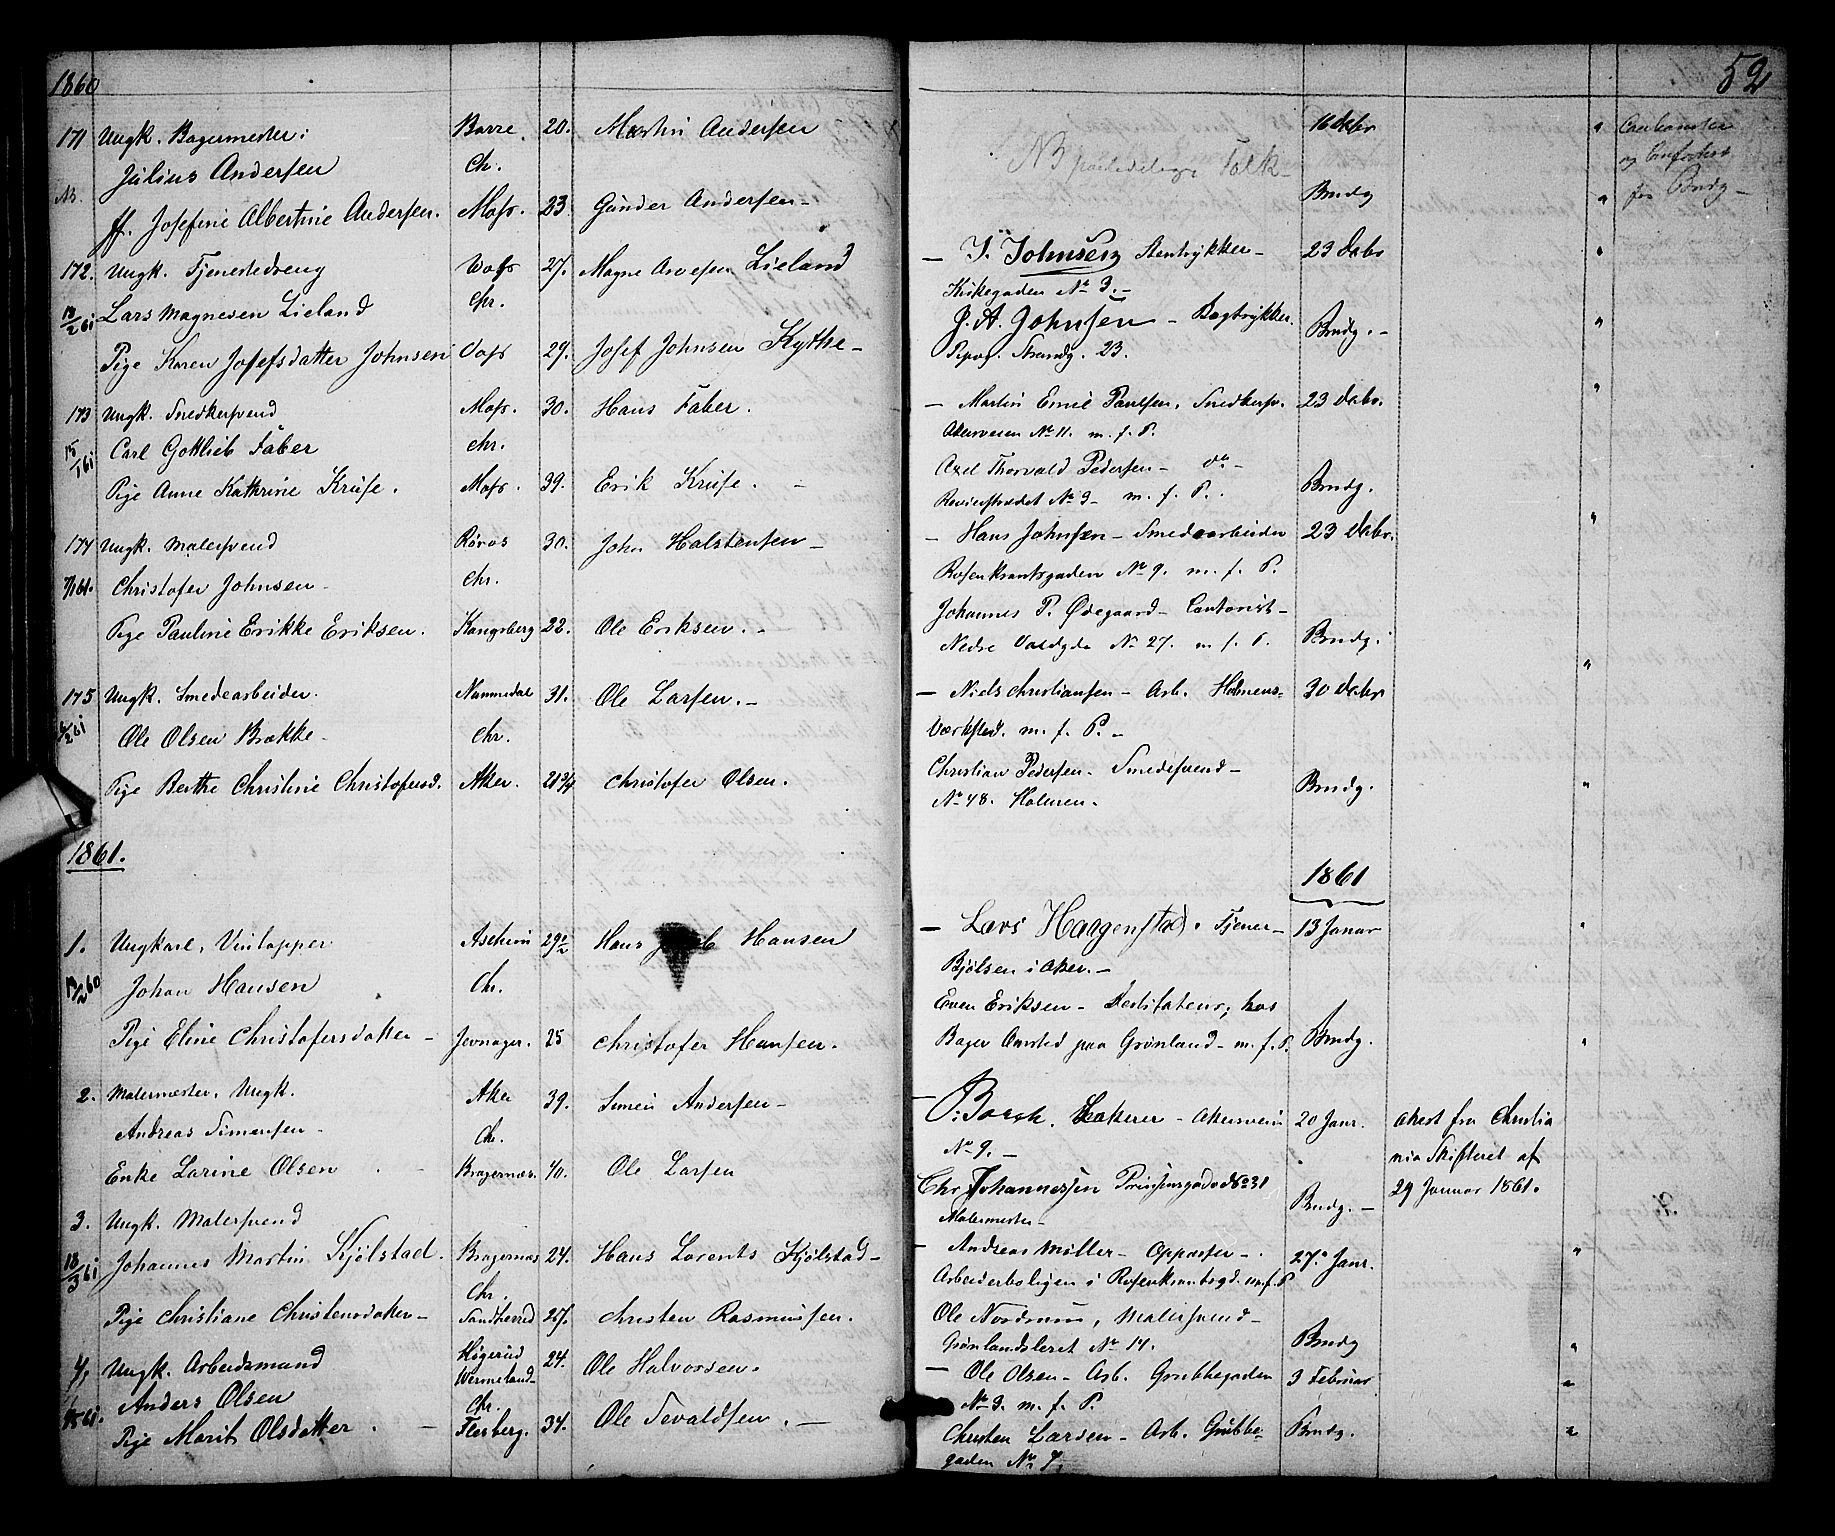 1860
52
171 Ungk. Bagermester: Borre 20. Martin Andersen 16 Dcbr
Julius Andersen Chr.
NB paalidelige Folk
NB. ff. Josefine Albertine Andersen. Moss. 23 Gunder Andersen Brudg
172. Ungk. Tjenestedreng Voss 27. Magne Arvesen Lieland — J. Johnsen Stentrykker — 23 Decbr
Lars Magnesen Lieland Chr. Kirkegaden No 3. —
J. A. Johnsen — Bogtrykker. Brudg. —
Pige Karen Josefsdatter Johnsen Voss 29. Josef Johnsen Kythe — Pipv. Strandg. 23.
173 Ungk. Snedkersvend Moss. 30. Hans Faber. — Martin Emil Paulsen, Snedkersv. 23 Decbr.
15/1 61 Carl Gottlieb Faber Chr. Akersveien No 11. m. f. P.
Axel Thorvald Pedersen — do —
Pige Anne Kathrine Kruse. Moss. 39. Erik Kruse. — No 9 — m. f. P. Brudg.
174 Ungk. Malersvend Röros 30. John Halstensen — — Hans Johnsen — Smedearbeider 23 Decbr.
Christofer Johnsen — Chr. Rosenkrantsgaden No 9. m. f. P.
Johannes P. Ødegaard — Contorist —
Pige Pauline Erikke Eriksen. Kongsberg 22. Ole Eriksen. — Nedre Voldgde No 27. m. f. P. Brudg.
175 Ungk. Smedearbeider. Nummedal 31. Ole Larsen. — — Niels Christiansen — Arb. Holmens 30 Decbr
Ole Olsen Brække. Chr. Værksted. m. f. P. —
Christian Pedersen — Smedesvend —
Pige Berthe Christine Christofersd. Aker. 21 3/4 Christofer Olsen. No 48. Holmen. Brudg.
1861. 1861
1. Ungkarl, Vintapper Askim 29 1/2 Hans Hansen — Lars Haagenstad. Tjener — 13 Januar
Johan Hansen Chr. Bjölsen i Aker. —
Even Eriksen — Destilateur, hos
Pige Eline Christofersdatter — Jevnager. 25 Christofer Hansen. Bager Onsted paa Grönland — m. f. P. Brudg.
2. Malermester, Ungk. Aker 39. Simen Andersen — — O: Borck. Lakerer — Akersveien 20 Janr. Attest fra Christia
Andreas Simensen — Chr. No 9. — nia Skifteret af
Enke Larine Olsen. — Bragernæs. 40. Ole Larsen Chr Johannessen Prinsensgade No 31 29 Januar 1861.
3. Ungk. Malersvend Malermester — Brudg. —
18/3 61 Johannes Martin Kjölstad. Bragernæs 24. Hans Lorents Kjölstad — — Andreas Möller — Oppasser — 27. Janr.
Chr. Arbeiderboligen i Rosenkrantsgd. m. f. P
Pige Christiane Christensdatter — Sandherred 26. Christen Rasmussen. Ole Nordrum, Malersvend —
Grønlandsleret No 14. Brudg
4. Ungk. Arbeidsmand Högerud Wermeland 24. Ole Halvorsen. — Ole Olsen — Arb. Grubbegaden 3 Februar
Anders Olsen Chr. No 3. m. f. P.
Pige Marit Olsdatter. — Flesberg. 34. Ole Sevaldsen. — Christen Larsen — Arb. Grubbe- Brudg.
gaden No 7.